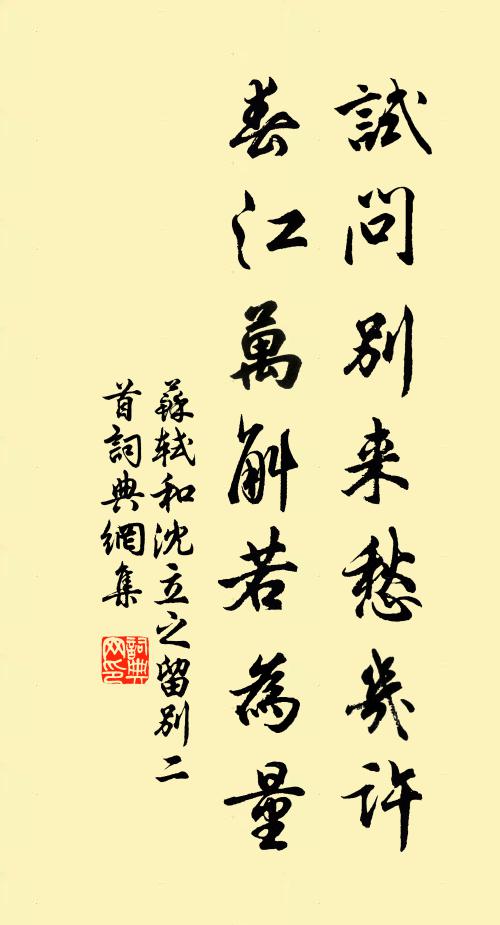 試問別来愁幾許
春江萬斛若為量
蘇軾和沈立之留別二
首詞典網集
詞典
网印